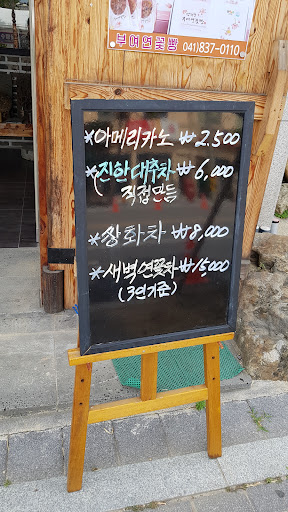 부여연꽃빵 (041)837-0110
*아메리카노 ₩2.500
*진한대추차 ₩6,000
직접만듬
*쌍화차 ₩8,000
*새벽연꽃차 ₩15000
(3인기준)